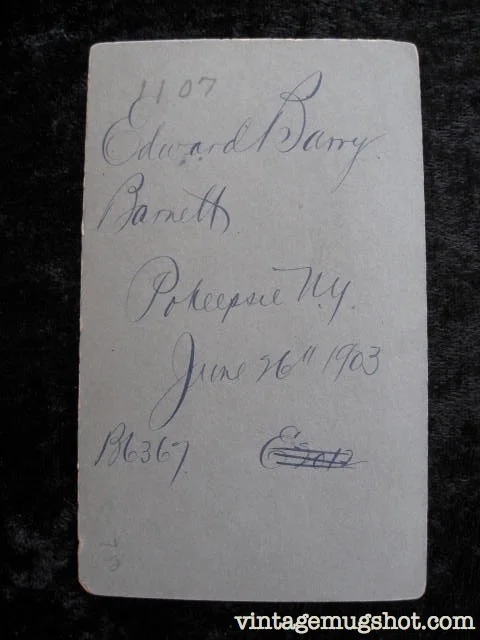 1107
Edward Barry
Barnett
Pokeepsie N.Y.
June 26" 1903
B6367
vintagemugshot.com